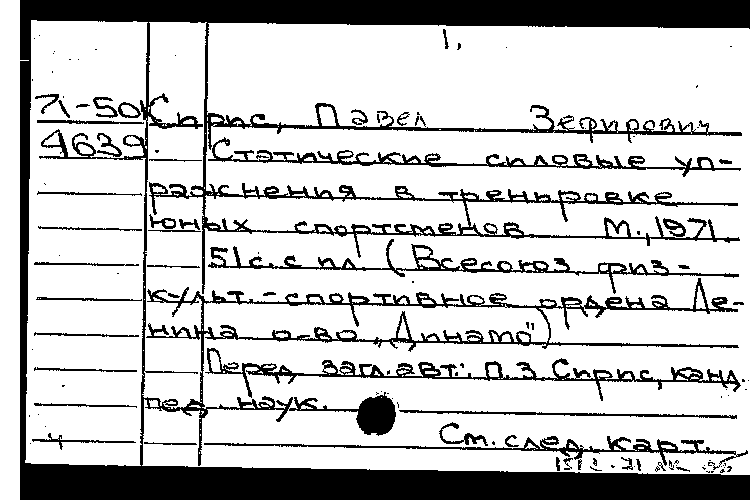 1.
71-50к Сирис, Павел Зефирович
4639. Статические силовые уп-
ражнения в тренировке
юных спортсменов М., 1971.
51с. с пл. (Всесоюз. физ-
культ.-спортивное ордена Ле-
нина о-во „Динамо")
Перед загл. авт.: П. З. Сирис, канд.
пед. наук.
См. след. карт.